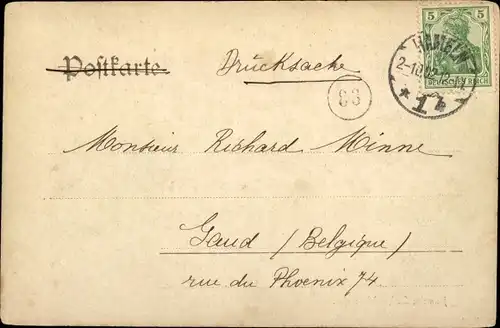 Postkarte
Drucksache
5 5
DEUTSCHES REICH
2-10 02 12-
* 1 b *
C3
Monsieur Richard Minne
Gand (Belgique)
rue du Phoenix 74